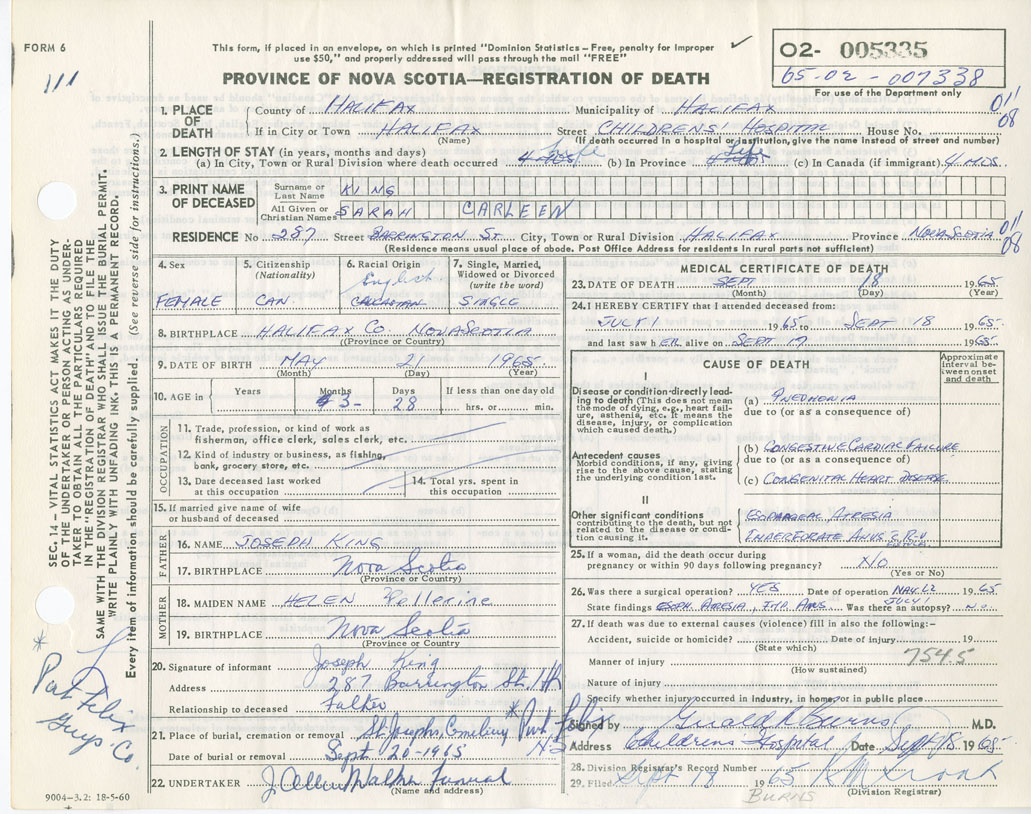 FORM 6
111
This form, if placed in an envelope, on which is printed "Dominion Statistics – Free, penalty for improper
use $50," and properly addressed will pass through the mail "FREE"
PROVINCE OF NOVA SCOTIA—REGISTRATION OF DEATH
✓
O2- 005335
65-02-007338
For use of the Department only
1. PLACE OF DEATH County of HALIFAX Municipality of HALIFAX 01/08
If in City or Town HALIFAX Street CHILDRENS' HOSPITAL House No.
(Name) (If death occurred in a hospital or institution, give the name instead of street and number)
2. LENGTH OF STAY (in years, months and days)
(a) In City, Town or Rural Division where death occurred Life (b) In Province Life (c) In Canada (if immigrant) 4 MOS.
3. PRINT NAME OF DECEASED Surname or Last Name KING
All Given or Christian Names SARAH CARLEEN
RESIDENCE No 287 Street BARRINGTON ST. City, Town or Rural Division HALIFAX Province NOVA SCOTIA 01/08
(Residence means usual place of abode. Post Office Address for residents in rural parts not sufficient)
4. Sex FEMALE
5. Citizenship (Nationality) CAN
6. Racial Origin English CAUCASIAN
7. Single, Married, Widowed or Divorced (write the word) SINGLE
8. BIRTHPLACE HALIFAX CO. NOVA SCOTIA
(Province or Country)
9. DATE OF BIRTH MAY 21 1965
(Month) (Day) (Year)
10. AGE in Years Months 3 Days 28 If less than one day old hrs. or min.
OCCUPATION
11. Trade, profession, or kind of work as
fisherman, office clerk, sales clerk, etc.
12. Kind of industry or business, as fishing,
bank, grocery store, etc.
13. Date deceased last worked
at this occupation
14. Total yrs. spent in
this occupation
15. If married give name of wife
or husband of deceased
FATHER
16. NAME JOSEPH KING
17. BIRTHPLACE Nova Scotia
(Province or Country)
MOTHER
18. MAIDEN NAME HELEN Pellerine
19. BIRTHPLACE Nova Scotia
(Province or Country)
20. Signature of informant Joseph King
Address 287 Barrington St. Hfx
Relationship to deceased Father
21. Place of burial, cremation or removal St. Josephs Cemetery * Port Felix NS
Date of burial or removal Sept. 20-1965
22. UNDERTAKER J Allen Walker Funeral
(Name and address)
9004–3.2: 18-5-60
MEDICAL CERTIFICATE OF DEATH
23. DATE OF DEATH SEPT 18 1965
(Month) (Day) (Year)
24. I HEREBY CERTIFY that I attended deceased from:
JULY 1 1965 to SEPT 18 1965
and last saw h ER alive on SEPT 17 1965
CAUSE OF DEATH
Approximate interval between onset and death
I
Disease or condition directly leading
to death (This does not mean
the mode of dying, e.g., heart failure,
asthenia, etc. It means the
disease, injury, or complication
which caused death.)
(a) PNEUMONIA
due to (or as a consequence of)
Antecedent causes
Morbid conditions, if any, giving
rise to the above cause, stating
the underlying condition last.
(b) CONGESTIVE CARDIAC FAILURE
due to (or as a consequence of)
(c) CONGENITAL HEART DISEASE
II
Other significant conditions
contributing to the death, but not
related to the disease or condition
causing it.
ESOPHAGEAL ATRESIA
IMPERFORATE ANUS
25. If a woman, did the death occur during
pregnancy or within 90 days following pregnancy? NO
(Yes or No)
26. Was there a surgical operation? YES Date of operation MAY 22 1965
JULY 1
State findings ESOPH ATRESIA, IMP. ANUS Was there an autopsy? NO
27. If death was due to external causes (violence) fill in also the following:–
Accident, suicide or homicide? Date of injury 19
(State which)
754.5
Manner of injury
(How sustained)
Nature of injury
Specify whether injury occurred in industry, in home, or in public place
Signed by Gerald R Burns M.D.
Address Childrens Hospital Date Sept 18 1965
28. Division Registrar's Record Number
29. Filed Sept 19 1965
(Division Registrar)
BURNS
SEC. 14 – VITAL STATISTICS ACT MAKES IT THE DUTY
OF THE UNDERTAKER OR PERSON ACTING AS UNDER-
TAKER TO OBTAIN ALL THE PARTICULARS REQUIRED
IN THE "REGISTRATION OF DEATH" AND TO FILE THE
SAME WITH THE DIVISION REGISTRAR WHO SHALL ISSUE THE BURIAL PERMIT.
WRITE PLAINLY WITH UNFADING INK. THIS IS A PERMANENT RECORD.
Every item of information should be carefully supplied. (See reverse side for instructions.)
* Port Felix
Guys' Co.